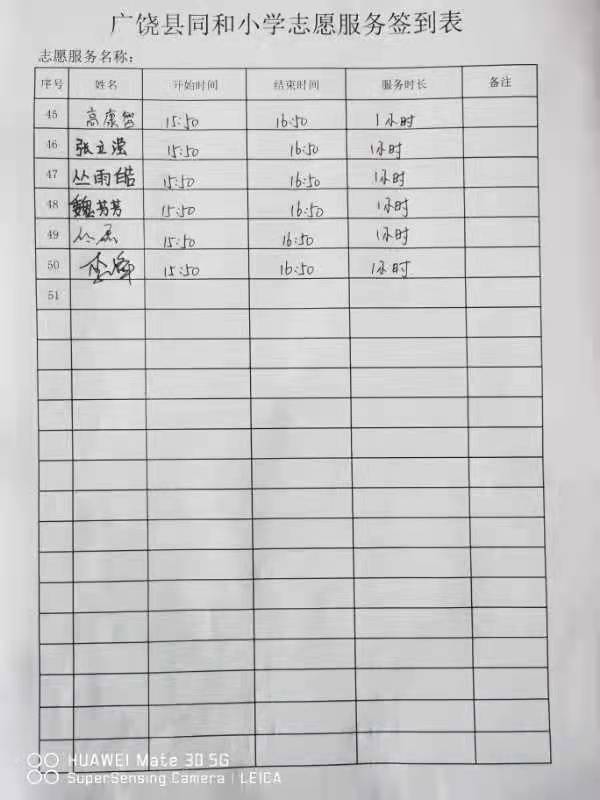 广饶县同和小学志愿服务签到表
志愿服务名称：
序号 姓名 开始时间 结束时间 服务时长 备注
45 高康 15:50 16:50 1小时
46 张立滢 15:50 16:50 1小时
47 丛雨皓 15:50 16:50 1小时
48 魏芳芳 15:50 16:50 1小时
49 15:50 16:50 1小时
50 15:50 16:50 1小时
51
HUAWEI Mate 30 5G
SuperSensing Camera | LEICA